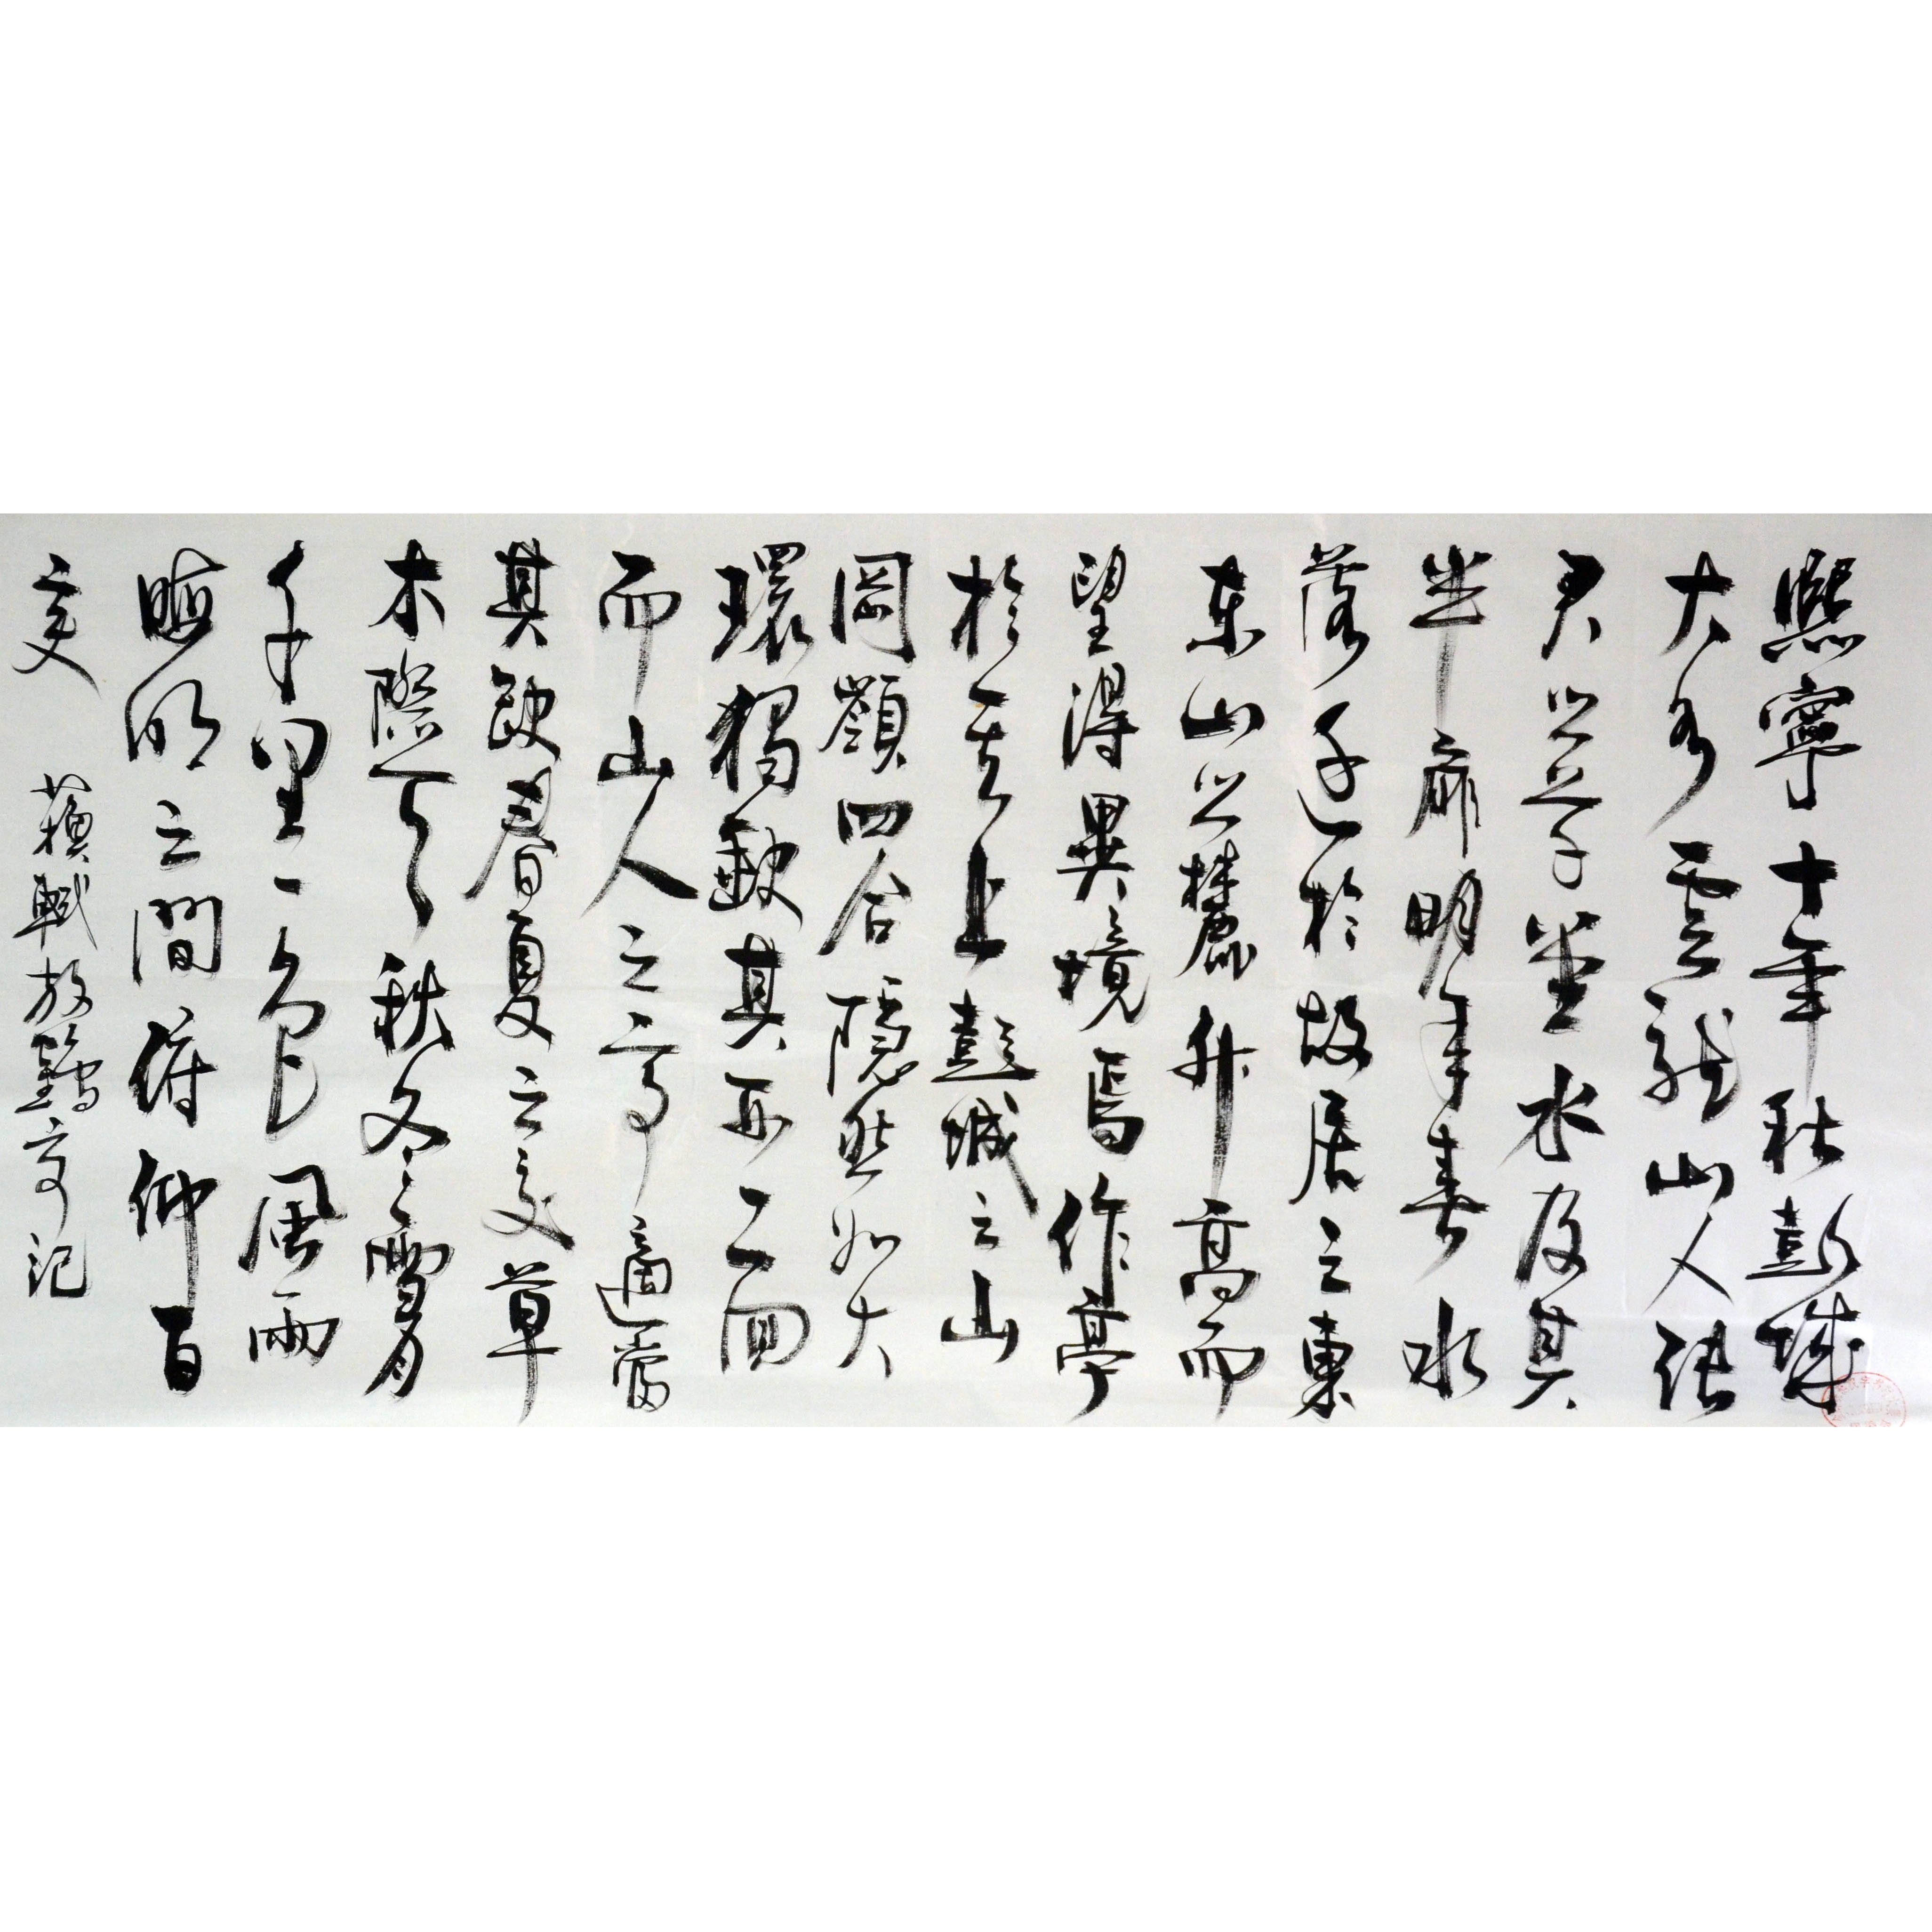 熙寧十年秋彭城
大水雲龍山人張
君之草堂水及其
半扉明年春水
落遷於故居之東
東山之麓升高而
望得異境焉作亭
於其上彭城之山
岡嶺四合隱然如大
環獨缺其西一面
而山人之亭適當
其缺春夏之交草
木際天秋冬雪月
千里一色風雨
晦明之間俯仰百
變
蘇軾放鶴亭記